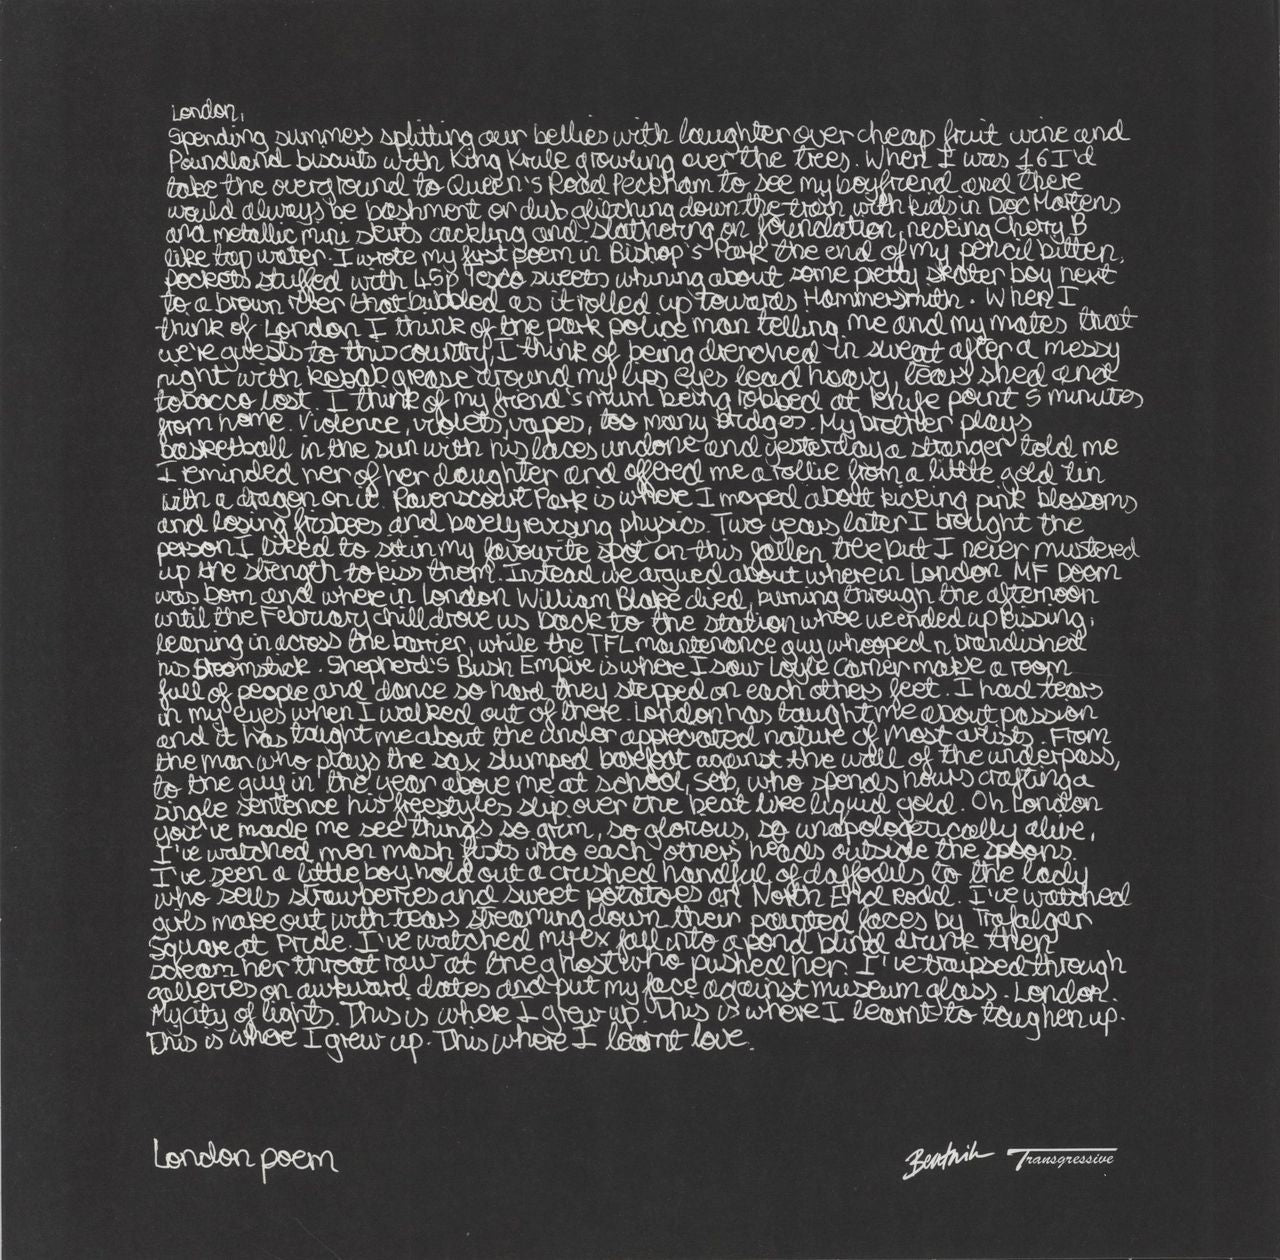 London,
Spending summers splitting our bellies with laughter over cheap fruit wine and
Poundland biscuits with King Krule growling over the trees. When I was 16 I'd
take the overground to Queen's Road Peckham to see my boyfriend and there
would always be bashment or dub glitching down the train with kids in Doc Martens
and metallic mini skirts cackling and slathering on foundation, necking Cherry B
like tap water. I wrote my first poem in Bishop's Park the end of my pencil bitten,
pockets stuffed with 45p Tesco sweets whining about some pretty skater boy next
to a brown river that bubbled as it rolled up towards Hammersmith. When I
think of London I think of the park police man telling me and my mates that
we're guests to this country, I think of being drenched in sweat after a messy
night with kebab grease around my lips eyes lead heavy, tears shed and
tobacco lost. I think of my friend's mum being robbed at knife point 5 minutes
from home. Violence, violets, vapes, too many bridges. My brother plays
basketball in the sun with his laces undone and yesterday a stranger told me
I reminded her of her daughter and offered me a rollie from a little gold tin
with a dragon on it. Ravenscourt Park is where I moped about kicking pink blossoms
and losing frisbees and barely revising physics. Two years later I brought the
person I liked to sit in my favourite spot on this fallen tree but I never mustered
up the strength to kiss them. Instead we argued about where in London MF Doom
was born and where in London William Blake died, burning through the afternoon
until the February chill drove us back to the station where we ended up kissing,
leaning in across the barrier, while the TFL maintenance guy whooped n brandished
his broomstick. Shepherd's Bush Empire is where I saw Loyle Carner make a room
full of people and dance so hard they stepped on each others feet. I had tears
in my eyes when I walked out of there. London has taught me about passion
and it has taught me about the under appreciated nature of most artists. From
the man who plays the sax slumped barefoot against the wall of the underpass,
to the guy in the year above me at school, Seb, who spends hours crafting a
single sentence his freestyles slip over the beat like liquid gold. Oh London
you've made me see things so grim, so glorious, so unapologetically alive,
I've watched men mash fists into each others heads outside the spoons.
I've seen a little boy hold out a crushed handful of daffodils to the lady
who sells strawberries and sweet potatoes on North End Road. I've watched
girls make out with tears streaming down their painted faces by Trafalgar
Square at Pride. I've watched my ex fall into a pond blind drunk then
scream her throat raw at the ghost who pushed her. I've traipsed through
galleries on awkward dates and put my face against museum glass. London.
My city of lights. This is where I grew up. This is where I learnt to toughen up.
This is where I grew up. This where I learnt love.
London poem
Beatnik Transgressive